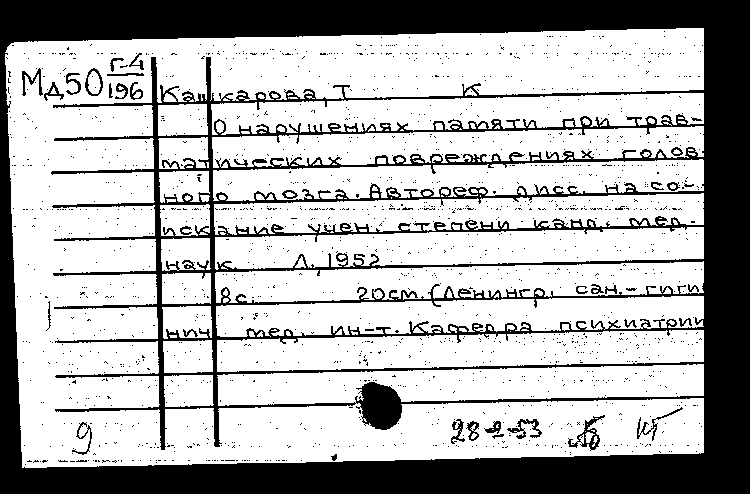 Мд50 Г-4/196
Кашкарова, Т К
О нарушениях памяти при трав-
матических повреждениях голов-
ного мозга. Автореф. дисс. на со-
искание учен. степени канд. мед.
наук. Л., 1952
8с. 20см. (Ленингр. сан.-гиги
нич. мед. ин-т. Кафедра психиатрии
9 28-2-53